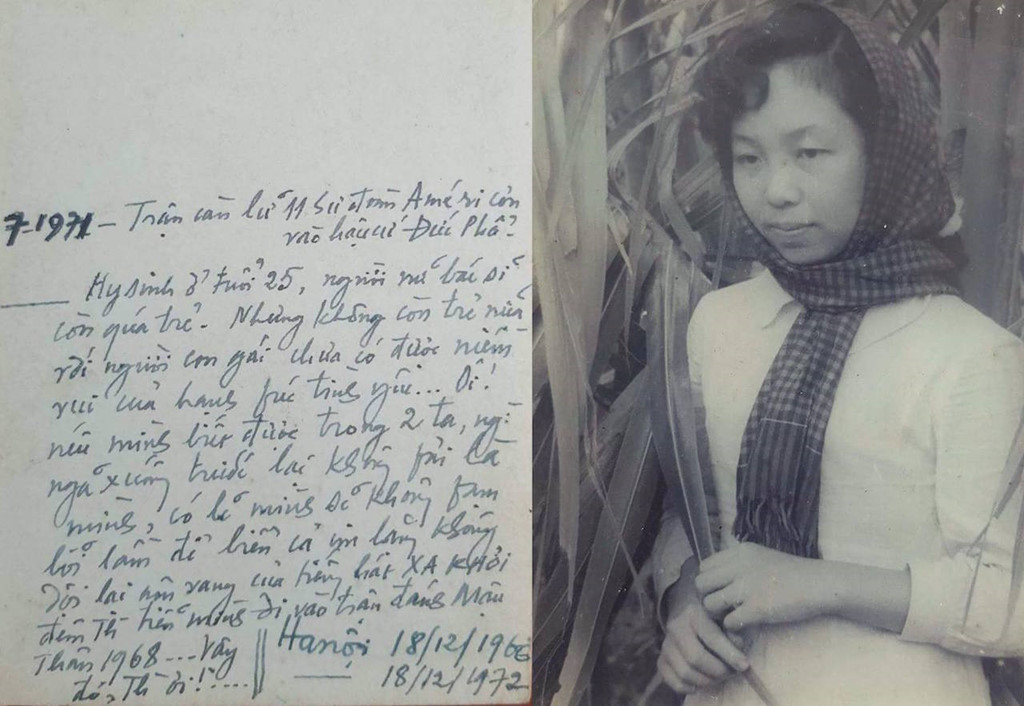 7-1971 - Trận càn lữ 11 sư đoàn Améri còn
vào hậu cứ Đức Phổ.
Hy sinh ở tuổi 25, người nữ bác sĩ
còn quá trẻ. Nhưng không còn trẻ nữa
rồi người con gái chưa có được niềm
vui của hạnh fúc tình yêu... Ôi!
nếu mình biết được trong 2 ta, ng:
ngã xuống trước lại không fải là
mình, có lẽ mình sẽ không fạm
lỗi lầm để biển cả im lặng không
dội lại âm vang của tiếng hát XA KHƠI
đêm Th tiễn mình đi vào trận đánh Mậu
Thân 1968.... Vậy
đó, Th ơi!....
Hanội 18/12/1966
18/12/1972